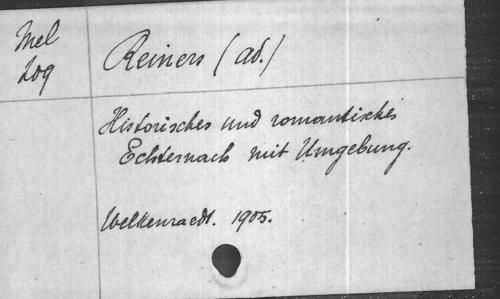 Mel
209
Reiners (ad.)
Historisches und romantisches
Echternach mit Umgebung.
Welkenraedt. 1905.